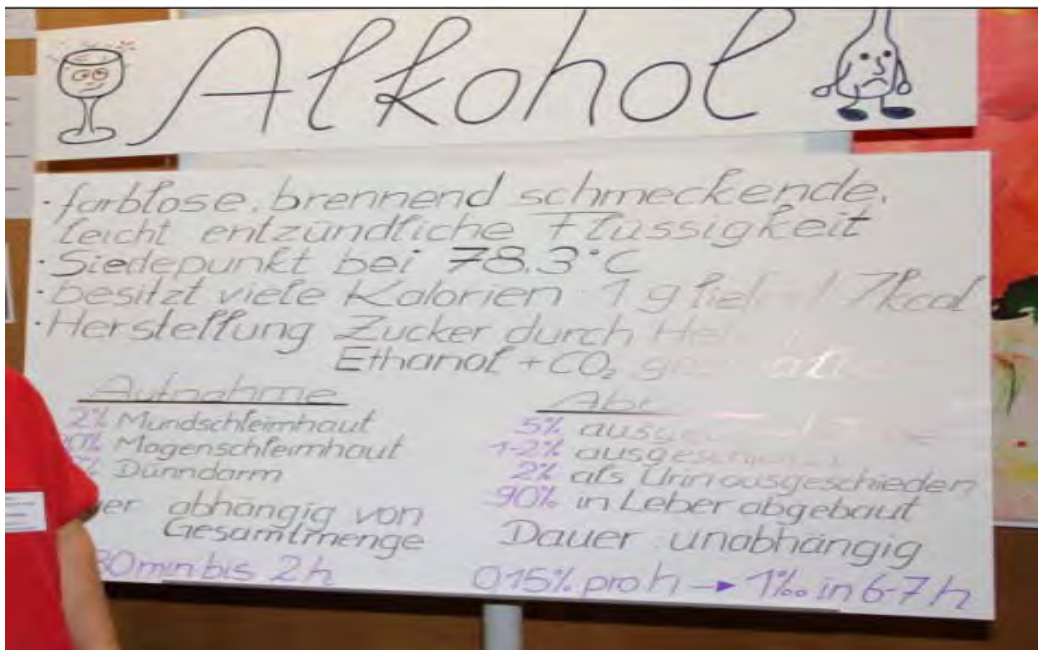 Alkohol
· farblose, brennend schmeckende,
leicht entzündliche Flüssigkeit
· Siedepunkt bei 78.3°C
· besitzt viele Kalorien 1 g 7kcal
· Herstellung Zucker durch
Ethanol + CO₂
Aufnahme
2% Mundschleimhaut
Magenschleimhaut
Dünndarm
abhängig von
Gesamtmenge
30min bis 2h
5%
1-2%
2% als Urin ausgeschieden
90% in Leber abgebaut
Dauer unabhängig
015% pro h → 1‰ in 6-7 h